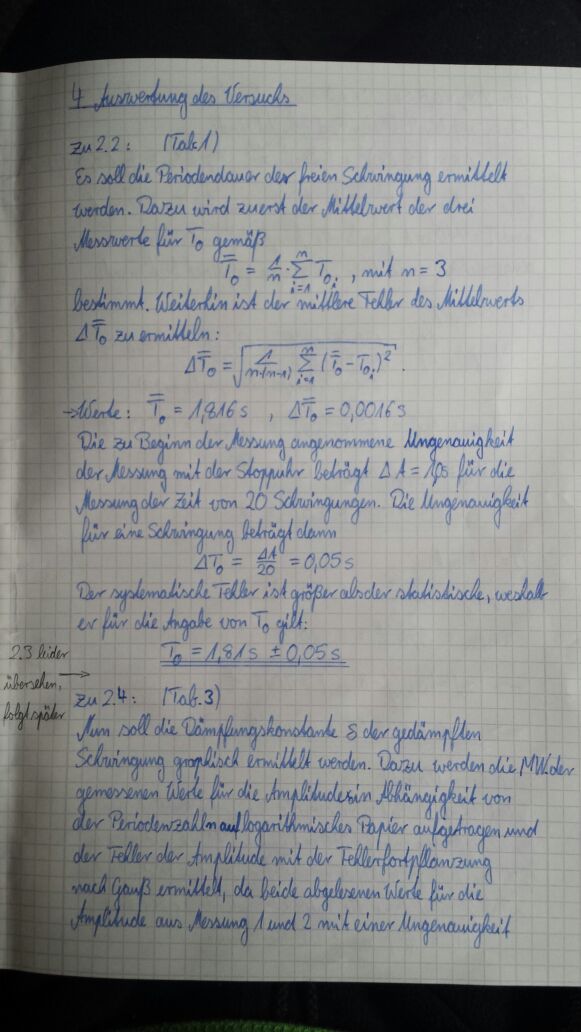 4 Auswertung des Versuchs
zu 2.2: (Tab.1)
Es soll die Periodendauer der freien Schwingung ermittelt
werden. Dazu wird zuerst der Mittelwert der drei
Messwerte für T₀ gemäß
T̿₀ = 1/n · Σ_{i=1}^{n} T₀ᵢ , mit n = 3
bestimmt. Weiterhin ist der mittlere Fehler des Mittelwerts
ΔT̿₀ zu ermitteln:
ΔT̿₀ = √(1/(n·(n-1)) Σ_{i=1}^{n} (T̿₀ - T₀ᵢ)²) .
→ Werte: T̿₀ = 1,816 s , ΔT̿₀ = 0,0016 s
Die zu Beginn der Messung angenommene Ungenauigkeit
der Messung mit der Stoppuhr beträgt Δt = 1,0s für die
Messung der Zeit von 20 Schwingungen. Die Ungenauigkeit
für eine Schwingung beträgt dann
ΔT₀ = Δt/20 = 0,05 s
Der systematische Fehler ist größer als der statistische, weshalb
er für die Angabe von T₀ gilt:
T₀ = 1,81 s ± 0,05 s
2.3 leider
übersehen,
folgt später →
zu 2.4: (Tab.3)
Nun soll die Dämpfungskonstante δ der gedämpften
Schwingung graphisch ermittelt werden. Dazu werden die MW der
gemessenen Werte für die Amplitude in Abhängigkeit von
der Periodenzahl n auf logarithmisches Papier aufgetragen und
der Fehler der Amplitude mit der Fehlerfortpflanzung
nach Gauß ermittelt, da beide abgelesenen Werte für die
Amplitude aus Messung 1 und 2 mit einer Ungenauigkeit